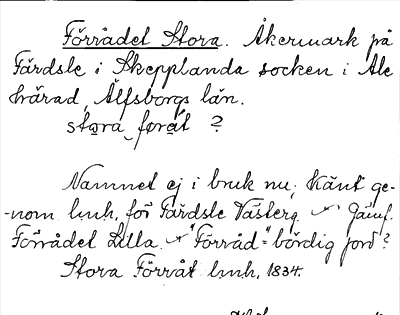 Förrådet Stora. Åkermark på
Färdsle i Skepplanda socken i Ale
härad, Älfsborgs län.
stora foråt ?
Namnet ej i bruk nu; känt ge-
-nom lmh. för Färdsle Västerg. Jämf.
Förrådet Lilla. "Förråd"= bördig jord?
Stora Förråt lmh. 1834.